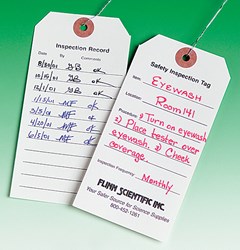 Inspection Record
Date By Comments
8/30/01 GB ok
10/10/01 GB ok
12/1/01 GB ok
1/15/01 MF ok
3/5/01 MF ok
4/20/01 MF ok
6/5/01 MF ok
Safety Inspection Tag
Item:
EYEWASH
Location:
Room 141
Procedure: 1) Turn on eyewash
2) Place tester over
eyewash. 3) Check
coverage.
Inspection Frequency:
Monthly
FLINN SCIENTIFIC INC.
Your Safer Source for Science Supplies
800-452-1261